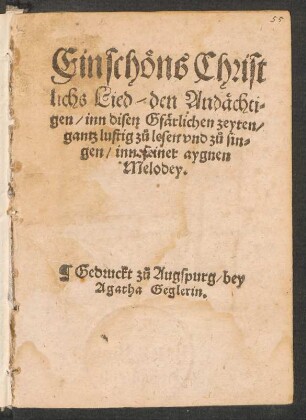 55
Ein schoͤns Christ
lichs Lied / den Andaͤchti-
gen / inn disen Gfaͤrlichen zeyten /
gantz lustig zuͦ lesen vnd zuͦ sin-
gen / inn seiner aygnen
Melodey.
¶ Gedruckt zuͦ Augspurg / bey
Agatha Geglerin.